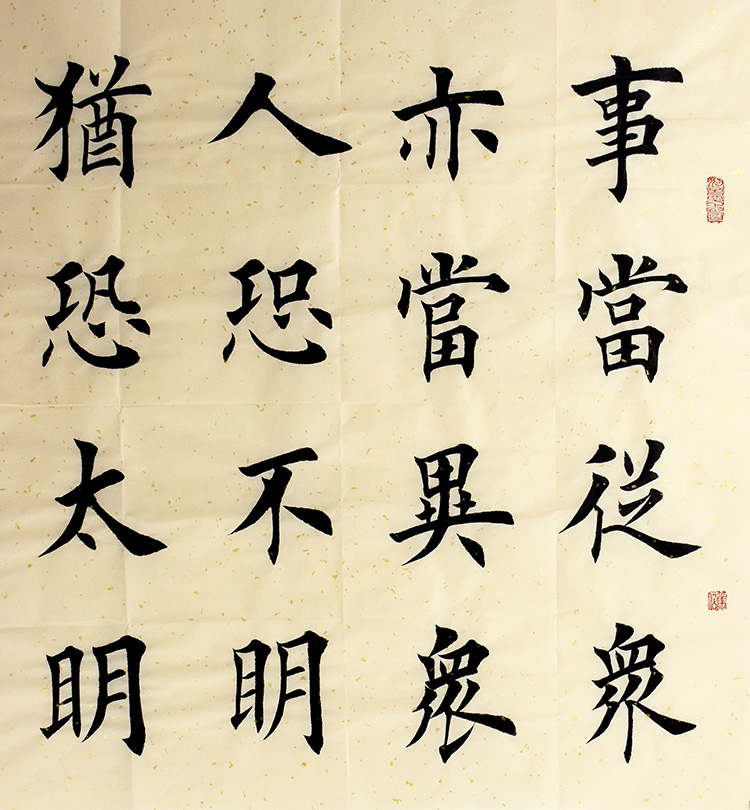 事當從眾
亦當異眾
人恐不明
猶恐太明